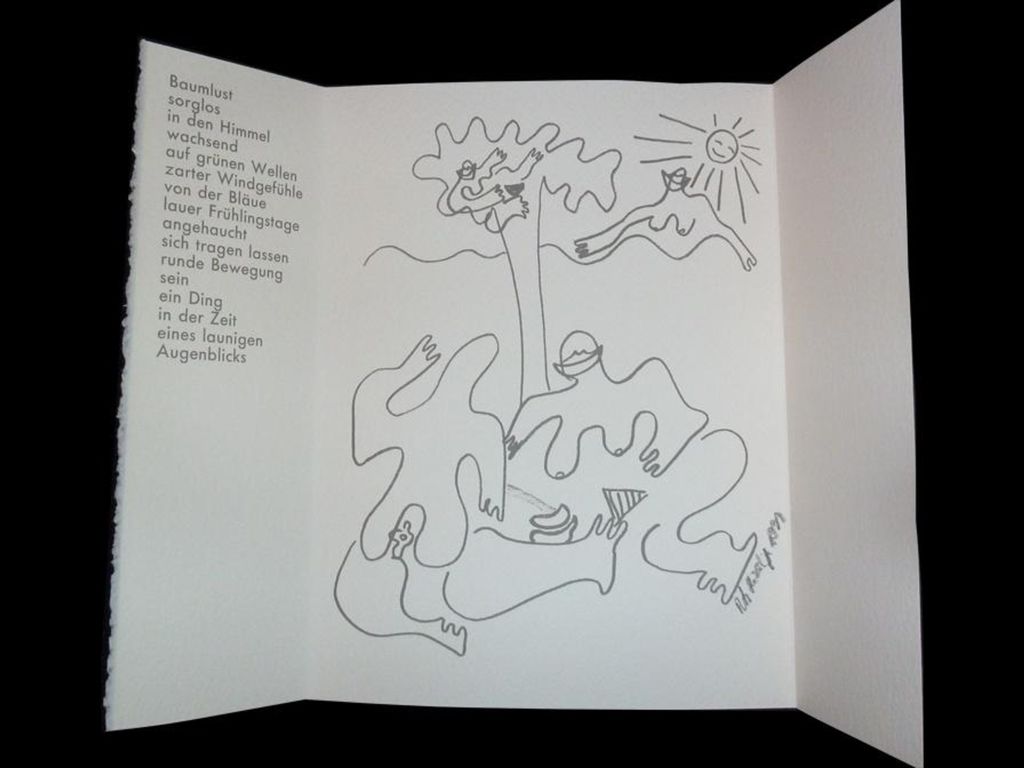 Baumlust
sorglos
in den Himmel
wachsend
auf grünen Wellen
zarter Windgefühle
von der Bläue
lauer Frühlingstage
angehaucht
sich tragen lassen
runde Bewegung
sein
ein Ding
in der Zeit
eines launigen
Augenblicks